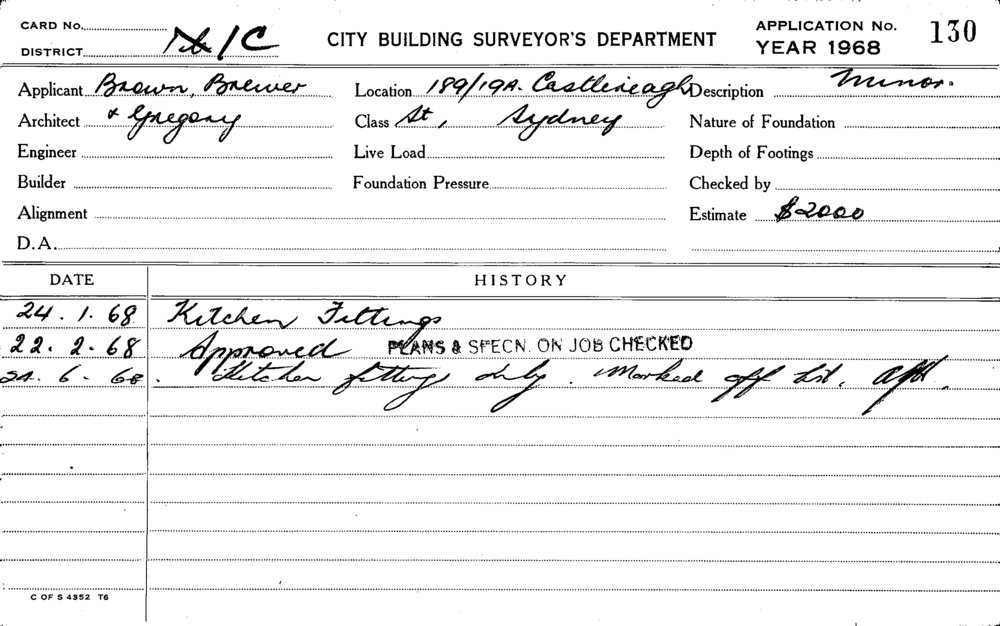 CARD No.
DISTRICT 1C
CITY BUILDING SURVEYOR'S DEPARTMENT
APPLICATION No. 130
YEAR 1968
Applicant Brown, Brewer
Architect & Gregory
Engineer
Builder
Alignment
D.A.
Location 189/19A. Castlereagh
Class St, Sydney
Live Load
Foundation Pressure
Description Minor.
Nature of Foundation
Depth of Footings
Checked by
Estimate $2000
DATE HISTORY
24.1.68 Kitchen Fittings
22.2.68 Approved PLANS & SPECN. ON JOB CHECKED
24.6.68. Kitchen fittings only. Marked off list.
C OF S 4352 T6